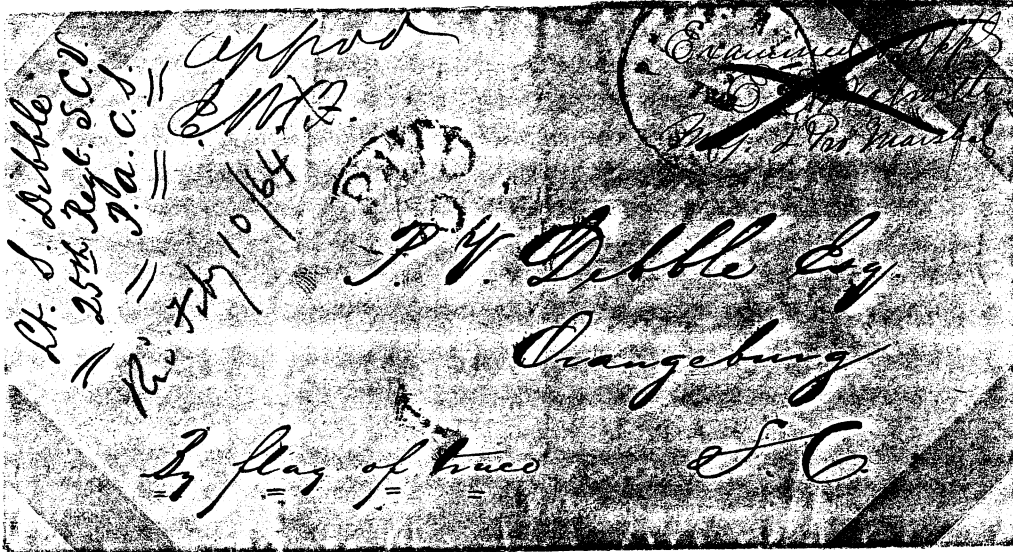 Lt. S. Dibble
25th Regt. S.C.V.
P.A.C.S.
appvd
Rec'd Feby 10/64
PAID
Examined & Appd
Maj. & Pro Marshal
P. V. Dibble Esq.
Orangeburg
S C.
By flag of truce